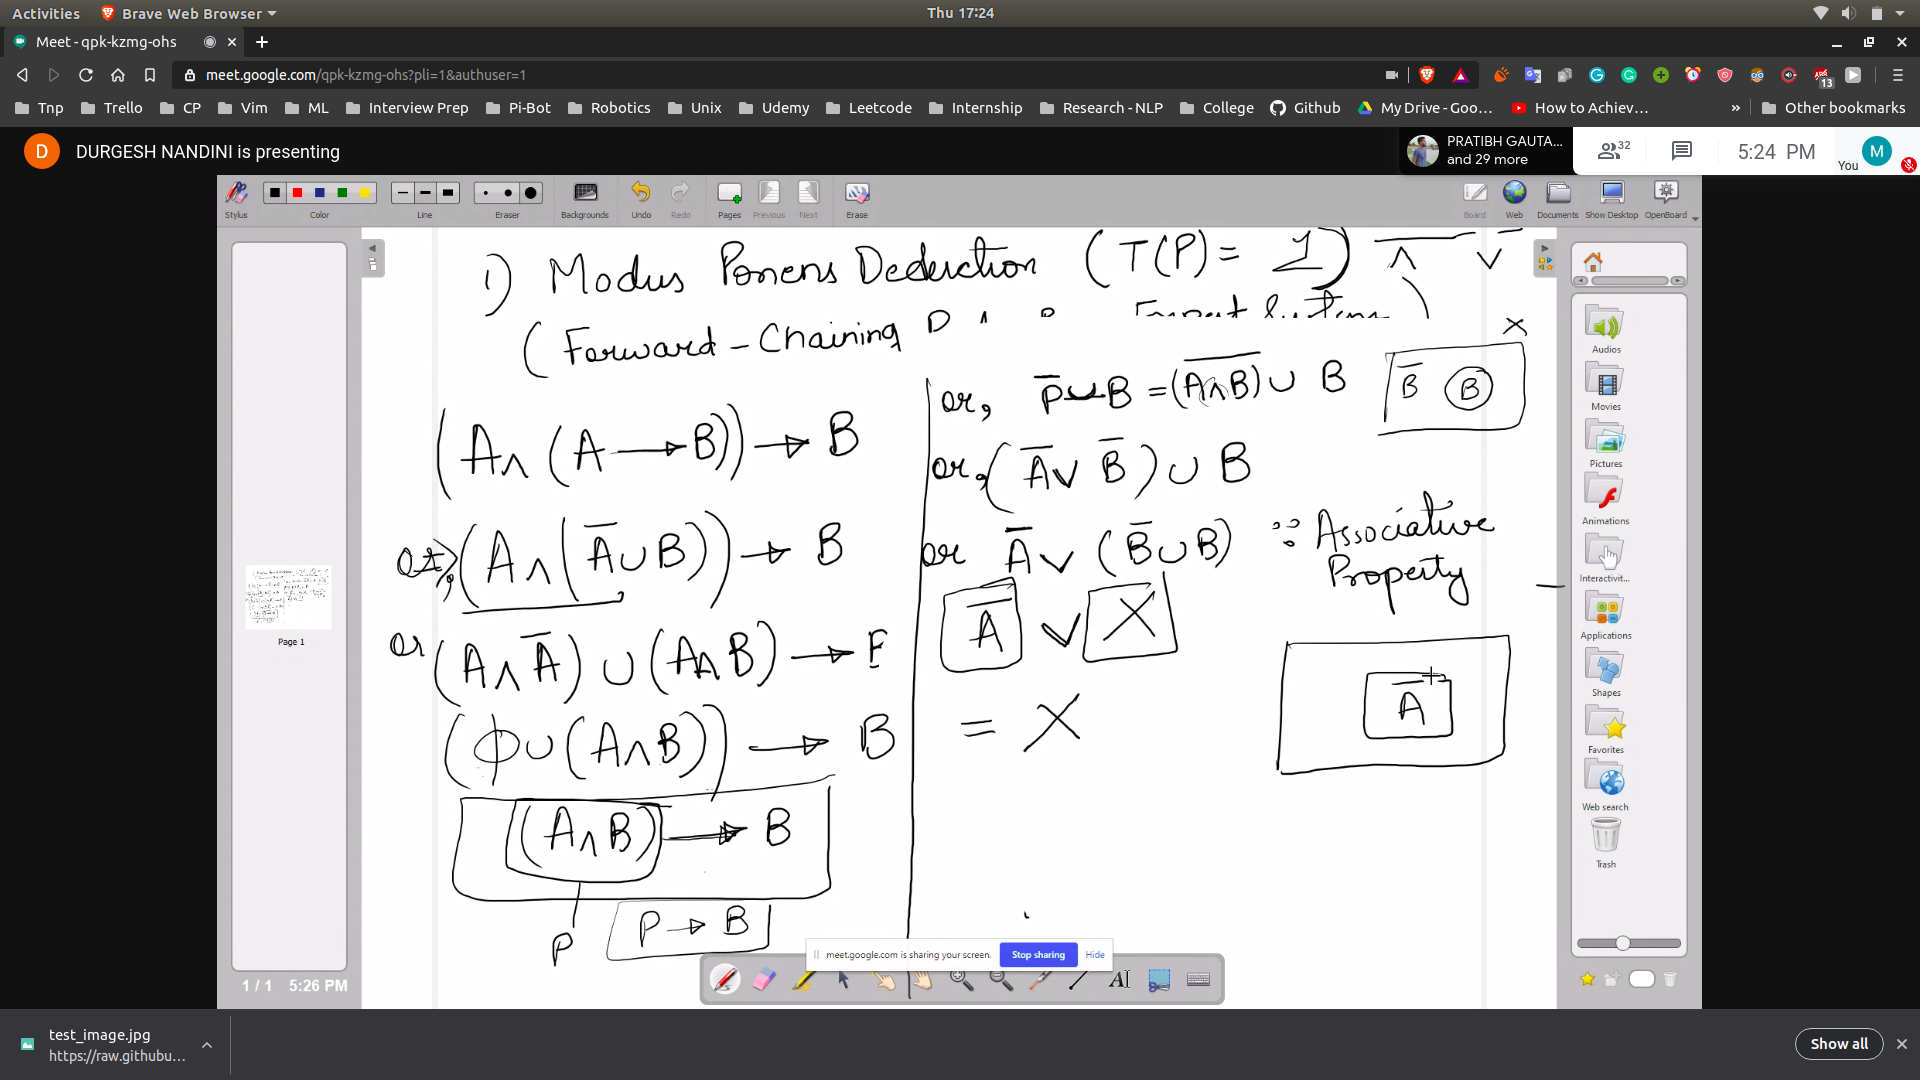 Activities Brave Web Browser Thu 17:24
Meet - qpk-kzmg-ohs
meet.google.com/qpk-kzmg-ohs?pli=1&authuser=1 13
Tnp Trello CP Vim ML Interview Prep Pi-Bot Robotics Unix Udemy Leetcode Internship Research - NLP College Github My Drive - Goo... How to Achiev... » Other bookmarks
D DURGESH NANDINI is presenting
PRATIBH GAUTA...
and 29 more
32 5:24 PM You M
Stylus Color Line Eraser Backgrounds Undo Redo Pages Previous Next Erase Board Web Documents Show Desktop OpenBoard
1) Modus Ponens Deduction (T(P) = 1) ∧ ∨
(Forward - Chaining
(A ∧ (A → B)) → B
(A ∧ (A̅ ∪ B)) → B
or (A ∧ A̅) ∪ (A ∧ B) →
(ϕ ∪ (A ∧ B)) → B
(A ∧ B) → B
P
P → B
or, P̅ ∪ B = (A̅ ̅∧̅ ̅B̅) ∪ B
B̅ B
X
or, (A̅ ∨ B̅) ∪ B
or A̅ ∨ (B̅ ∪ B) ∵ Associative
Property
A̅ ∨ X
= X
A̅
Page 1
1 / 1 5:26 PM
Audios
Movies
Pictures
Animations
Interactivit...
Applications
Shapes
Favorites
Web search
Trash
meet.google.com is sharing your screen. Stop sharing Hide
test_image.jpg
https://raw.githubu...
Show all